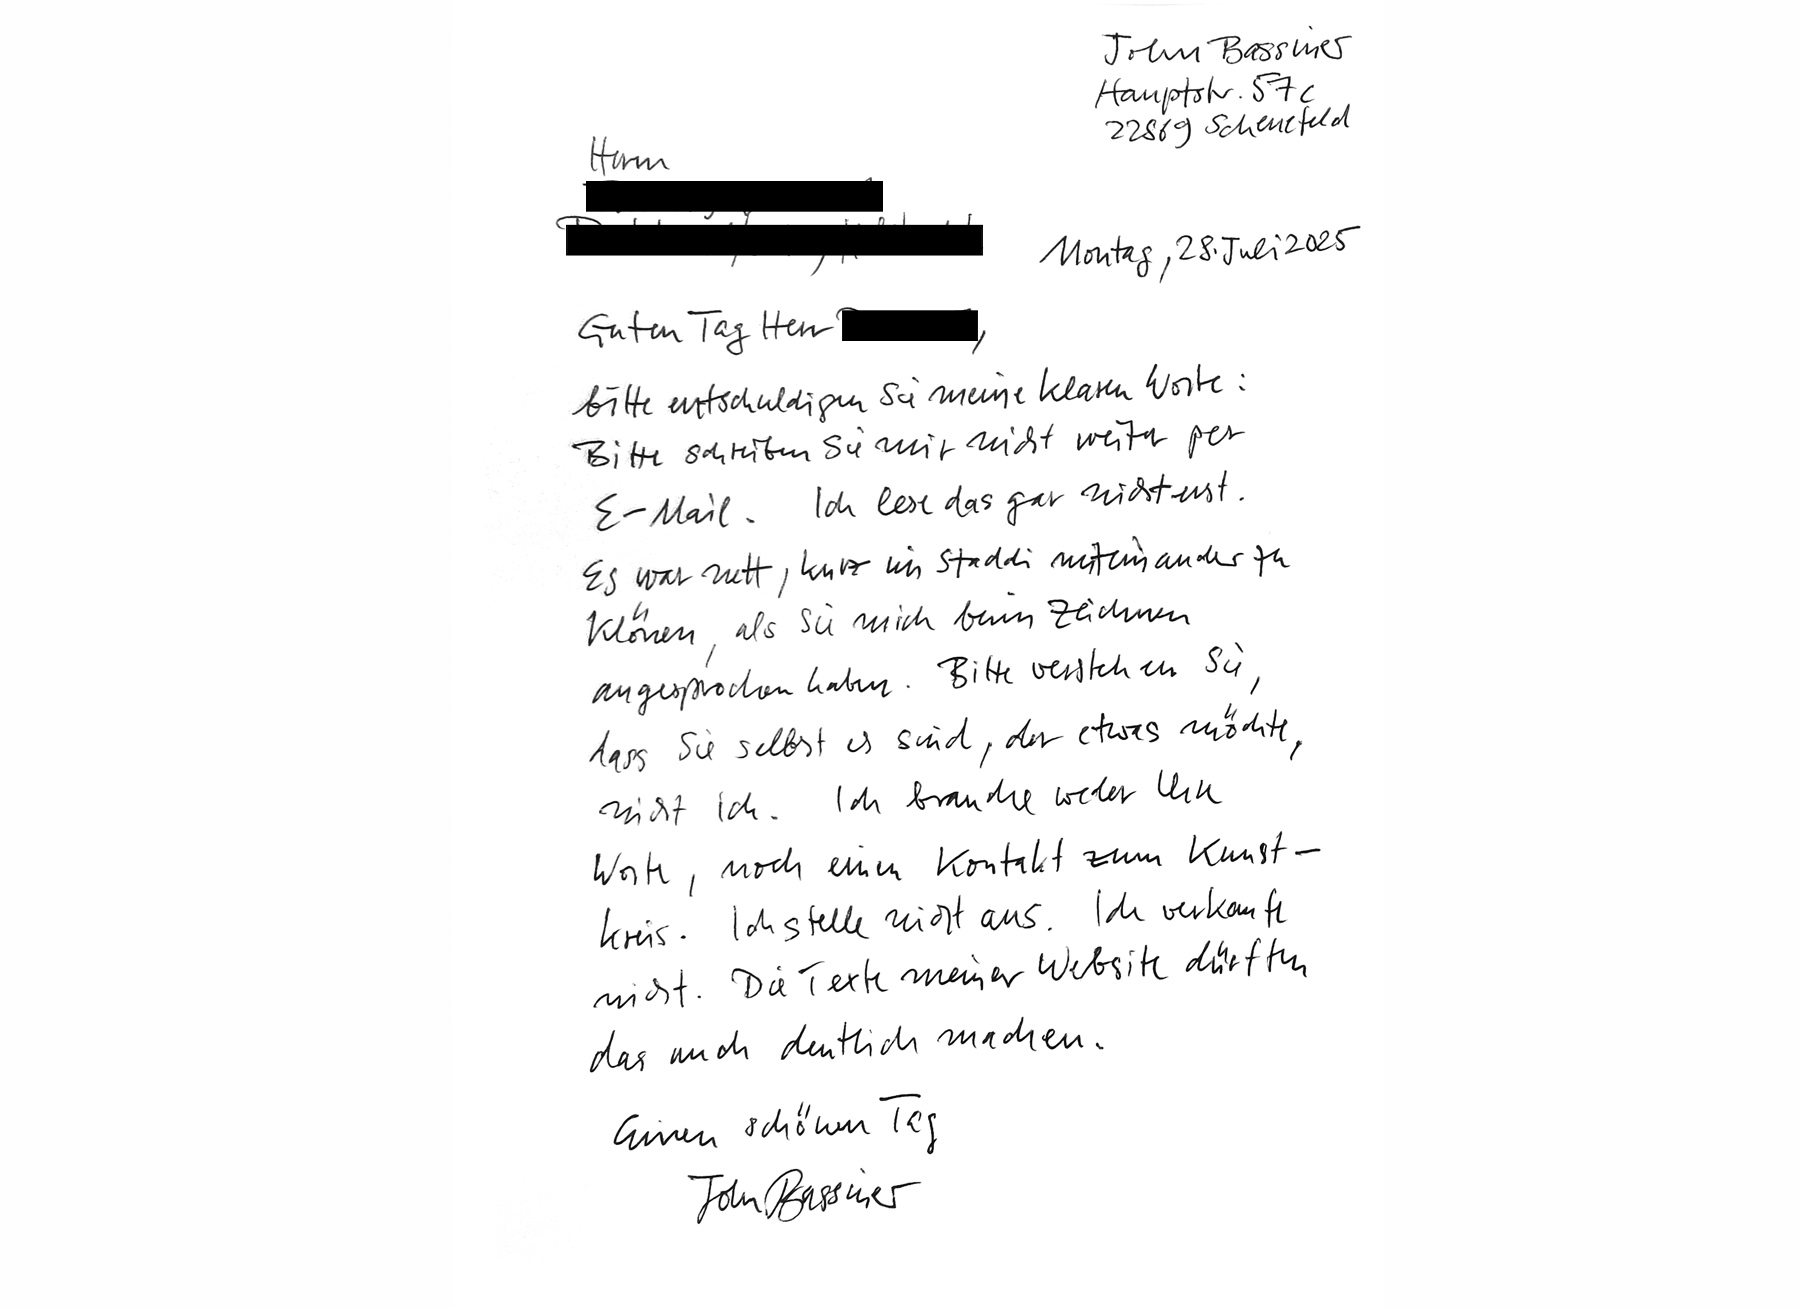 John Bassiner
Hauptstr. 57c
22869 Schenefeld
Herrn
Montag, 28. Juli 2025
Guten Tag Herr ,
bitte entschuldigen Sie meine klaren Worte:
Bitte schreiben Sie mir nicht weiter per
E-Mail. Ich lese das gar nicht erst.
Es war nett, kurz im Staddi miteinander zu
klönen, als Sie mich beim Zeichnen
angesprochen haben. Bitte verstehen Sie,
dass Sie selbst es sind, der etwas möchte,
nicht ich. Ich brauche weder Ihre
Worte, noch einen Kontakt zum Kunst-
kreis. Ich stelle nicht aus. Ich verkaufe
nicht. Die Texte meiner Website dürften
das auch deutlich machen.
Einen schönen Tag
John Bassiner